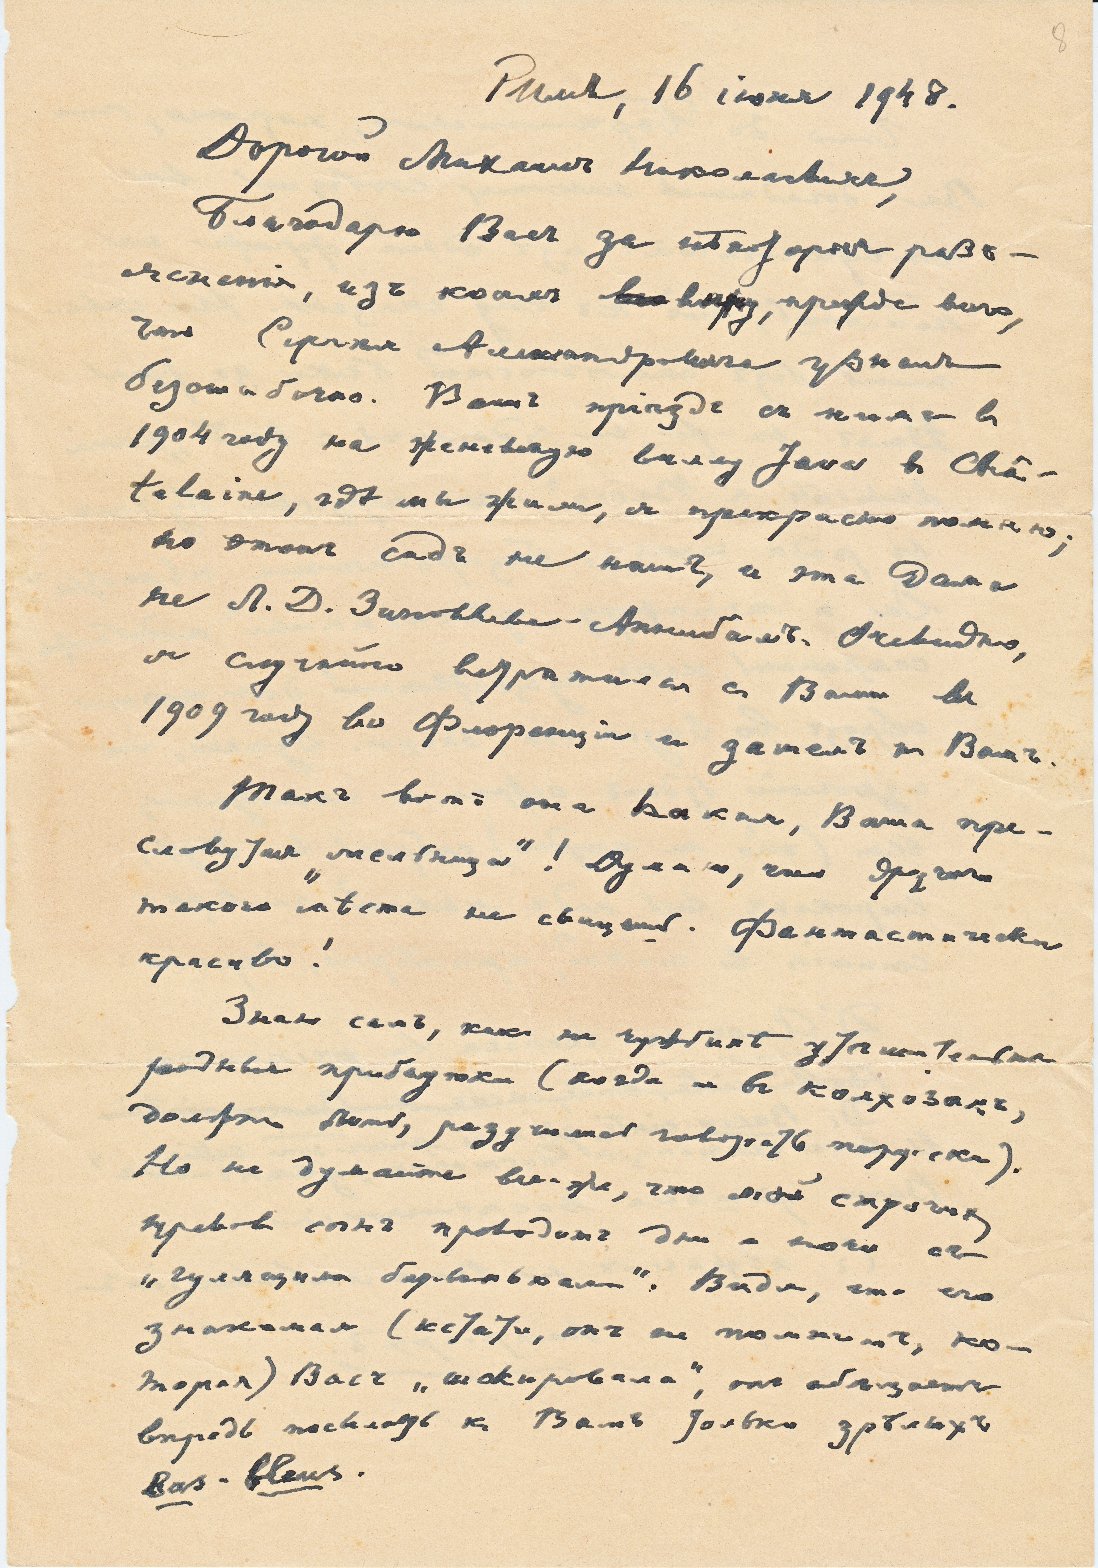 8
Римъ, 16 іюня 1948.
Дорогой Михаилъ Николаевичъ,
Благодарю Васъ за нѣкоторыя разъ-
ясненія, изъ коихъ вижу, прежде всего,
что Сергѣя Александровича узналъ
безошибочно. Вашъ пріездъ съ нимъ въ
1904 году на женевскую виллу Java въ Châ-
telaine, гдѣ мы жили, я прекрасно помню;
но этотъ садъ не нашъ, и эта дама
не Л. Д. Зиновьева-Аннибалъ. Очевидно,
я случайно встрѣтился съ Вами въ
1909 году во Флоренціи и затемъ
Такъ вотъ она какая, Ваша пре-
словутая „мельница"! Думаю, что другого
такого мѣста не сыщешь. Фантастически
красиво!
Знаю самъ, какъ на чужбинѣ утѣшительны
родныя прибаутки (когда и въ колхозахъ,
должно быть, разучились говорить по русски).
Но не думайте все-же, что мой
сынъ проводитъ дни и ночи съ
„гулящими бабёнками". Видя, что его
знакомая (кстати, онъ не помнитъ, ко-
торая) Васъ „шокировала", онъ обѣщаетъ
впредь посылать къ Вамъ только зрѣлыхъ
Bas-bleus.